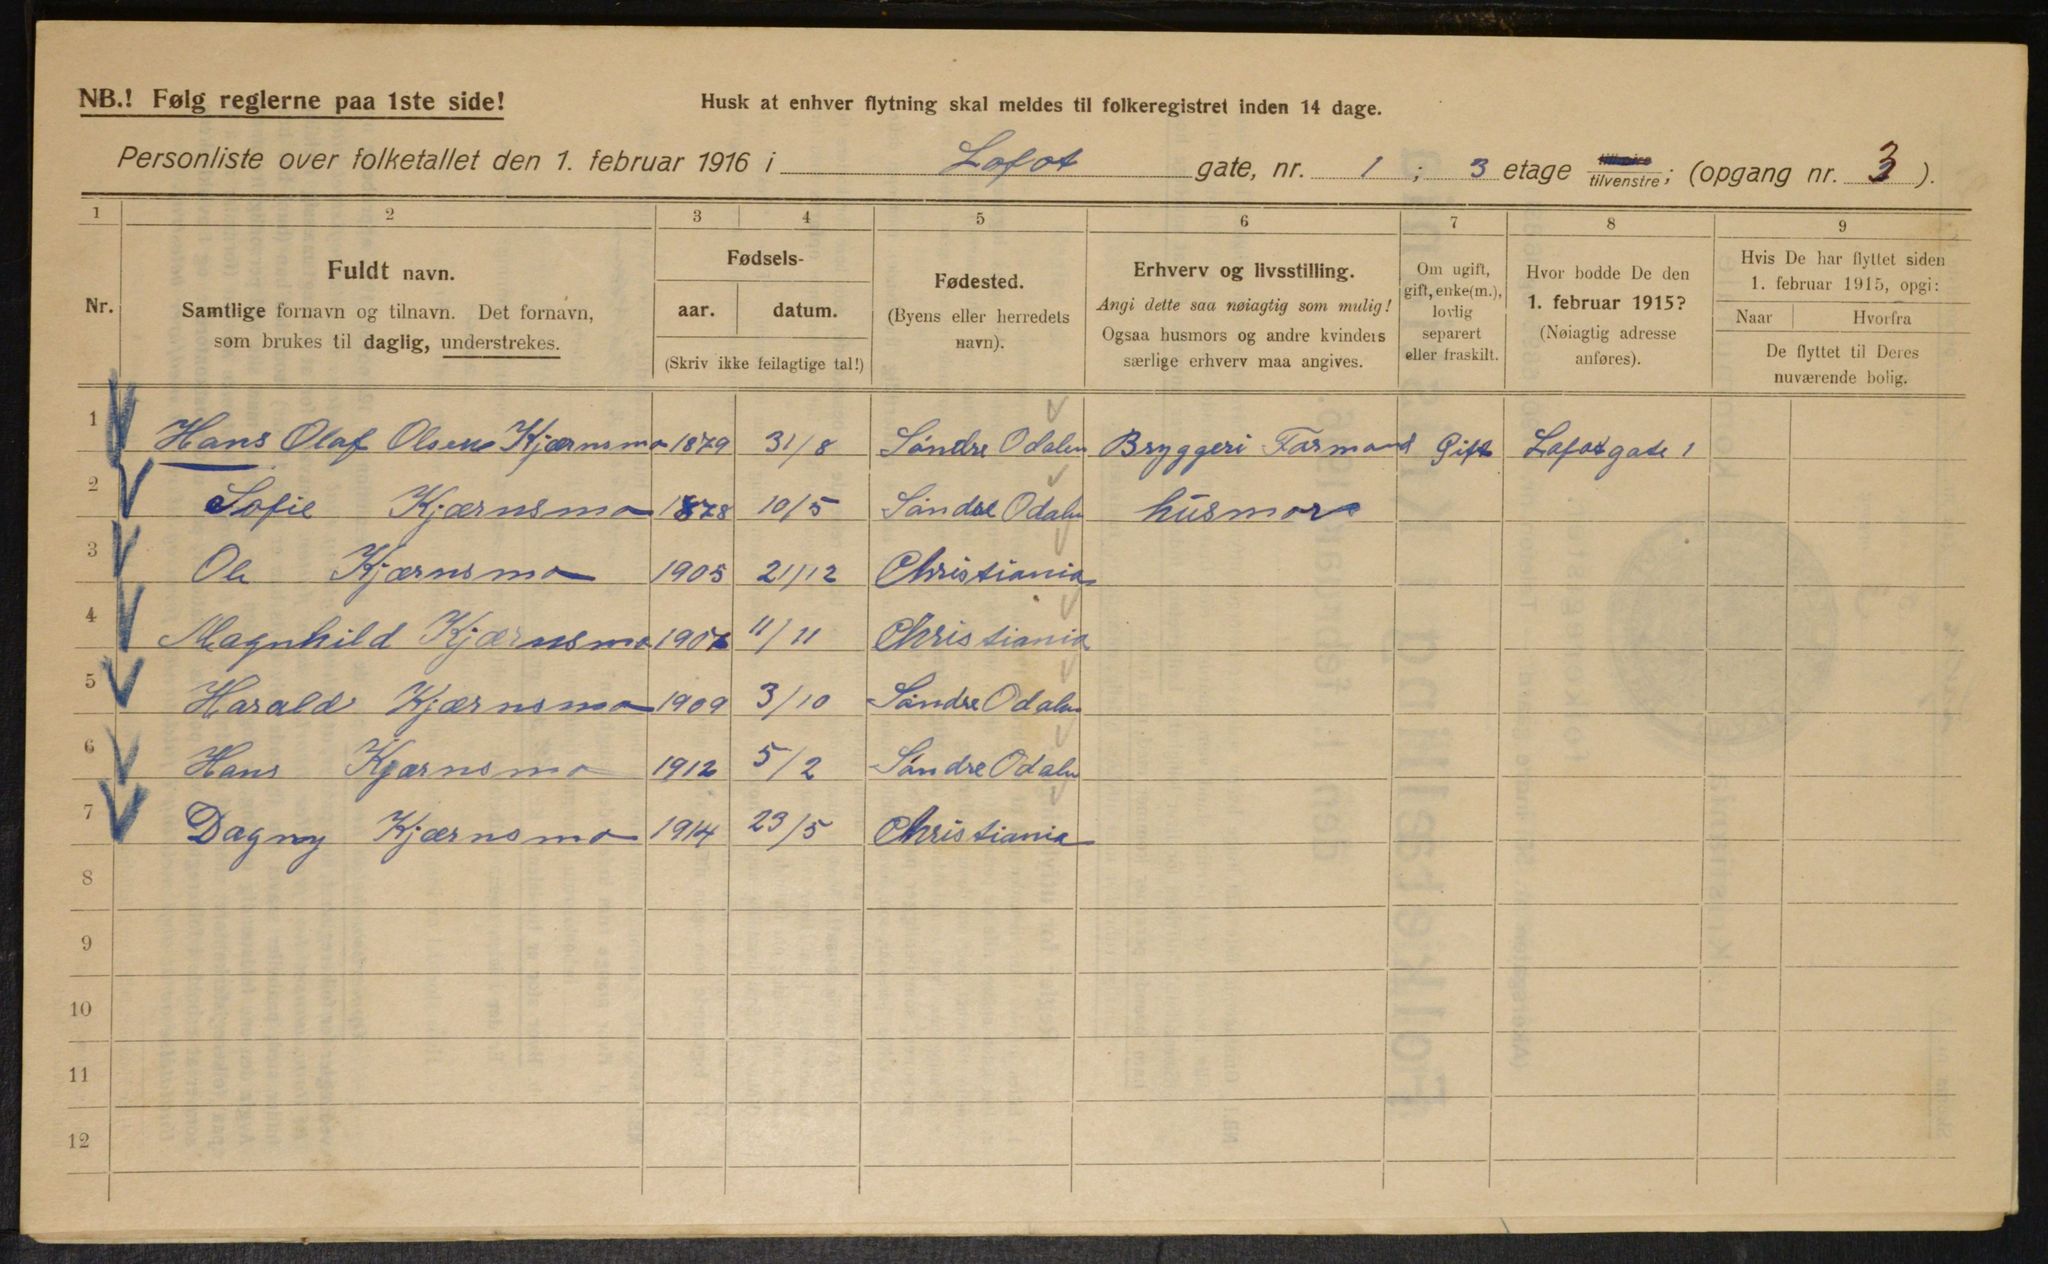 NB.! Følg reglerne paa 1ste side!
Husk at enhver flytning skal meldes til folkeregistret inden 14 dage.
Personliste over folketallet den 1. februar 1916 i Lofot gate, nr. 1 ; 3 etage tilhøire/tilvenstre; (opgang nr. 3 ).
1 2 3 4 5 6 7 8 9
Nr.
Fuldt navn.
Samtlige fornavn og tilnavn. Det fornavn,
som brukes til daglig, understrekes.
Fødsels-
aar. datum.
(Skriv ikke feilagtige tal!)
Fødested.
(Byens eller herredets
navn).
Erhverv og livsstilling.
Angi dette saa nøiagtig som mulig!
Ogsaa husmors og andre kvinders
særlige erhverv maa angives.
Om ugift,
gift, enke(m.),
lovlig
separert
eller fraskilt.
Hvor bodde De den
1. februar 1915?
(Nøiagtig adresse
anføres).
Hvis De har flyttet siden
1. februar 1915, opgi:
Naar Hvorfra
De flyttet til Deres
nuværende bolig.
1 Hans Olaf Olsen Kjærnsmo 1879 31/8 Søndre Odalen Bryggeri Formand Gift Lofotgate 1
2 Sofie Kjærnsmo 1878 10/5 Søndre Odalen husmor
3 Ole Kjærnsmo 1905 21/12 Christiania
4 Magnhild Kjærnsmo 1907 11/11 Christiania
5 Harald Kjærnsmo 1909 3/10 Søndre Odalen
6 Hans Kjærnsmo 1912 5/2 Søndre Odalen
7 Dagny Kjærnsmo 1914 23/5 Christiania
8
9
10
11
12